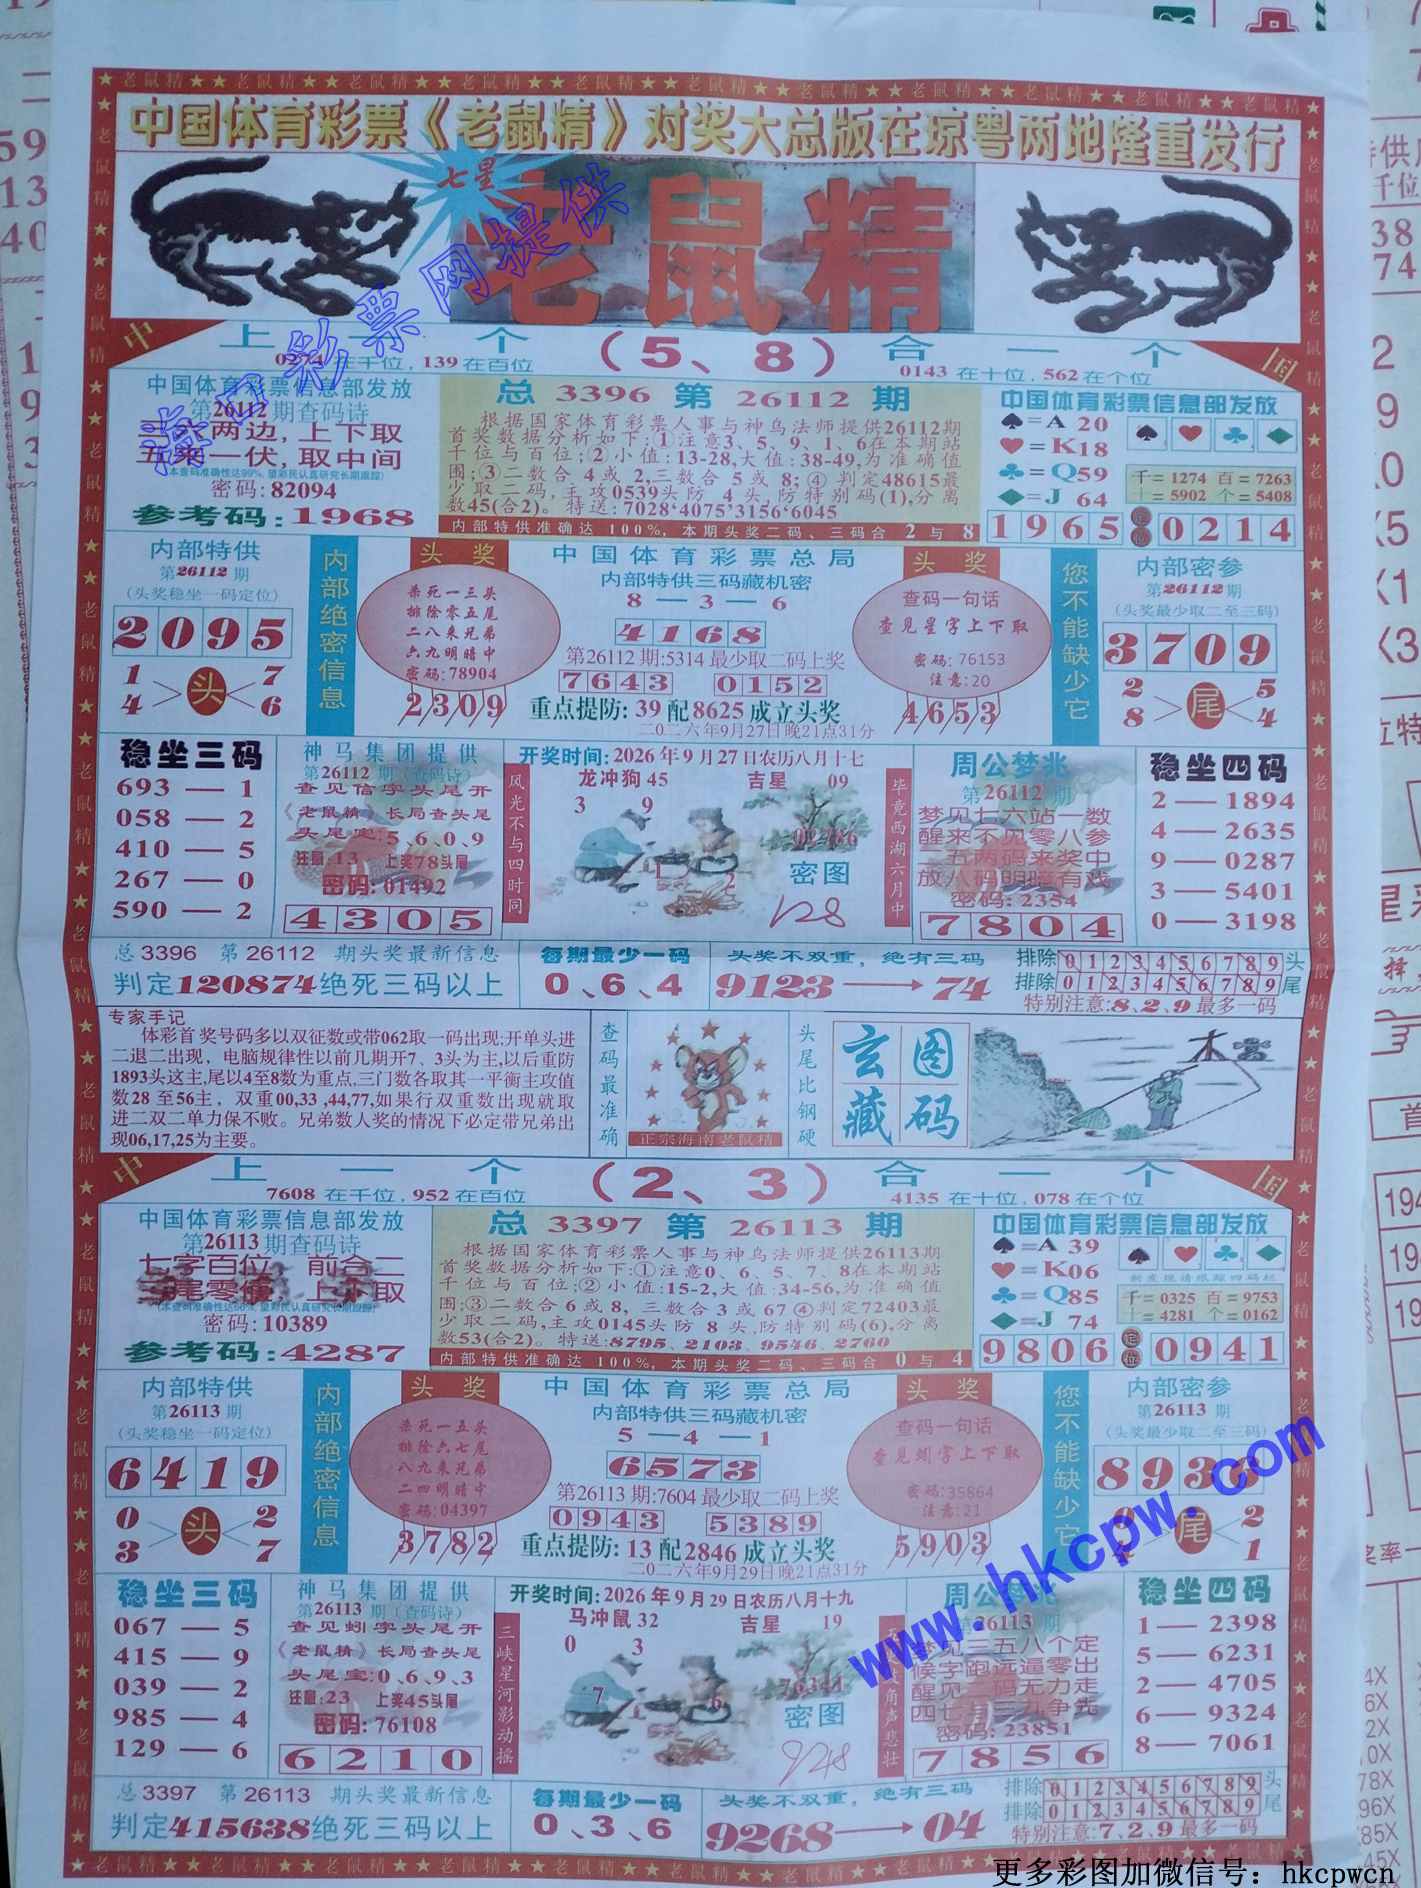 中国体育彩票《老鼠精》对奖大总版在琼粤两地隆重发行
七星
老鼠精
海口彩票网提供
中
国
上一个（5、8）合一个
在千位，139在百位
0143在十位，562在个位
中国体育彩票信息部发放
第26112期查码诗
两边，上下取
五来一伏，取中间
(本查码准确性达99%，望彩民认真研究长期跟踪)
密码：82094
参考码：1968
总 3396 第 26112 期
根据国家体育彩票人事与神乌法师提供26112期
首奖数据分析如下:①注意3、5、9、1、6在本期站
千位与百位;②小值:13-28,大值:38-49,为准确值
围;③二数合4或2,三数合5或8;④判定48615最
少取二码,主攻0539头防4头,防特别码(1),分离
数45(合2)。特送:7028*4075*3156*6045
内部特供准确达100%,本期头奖二码、三码合2与8
中国体育彩票信息部发放
♠=A 20
♥=K18
♣=Q59
♦=J 64
千=1274 百=7263
十=5902 个=5408
1965 定位 0214
内部特供
第26112期
(头奖稳坐一码定位)
2095
1 7
4 头 6
内部绝密信息
头奖
杀死一三头
排除零五尾
二八来兄弟
六九明暗中
密码:78904
2309
中国体育彩票总局
内部特供三码藏机密
8—3—6
4168
第26112期:5314最少取二码上奖
7643 0152
重点提防: 39配8625成立头奖
二〇二六年9月27日晚21点31分
头奖
查码一句话
查见星字上下取
密码:76153
注意:20
4653
您不能缺少它
内部密参
第26112期
(头奖最少取二至三码)
3709
2 5
8 尾 4
稳坐三码
693—1
058—2
410—5
267—0
590—2
神马集团提供
第26112期(查码诗)
查见信字头尾开
《老鼠精》长局查头尾
头尾定:5、6、0、9
注意:13 上奖78头尾
密码:01492
4305
开奖时间:2026年9月27日农历八月十七
龙冲狗45 吉星 09
3 9
风光不与四时同
毕竟西湖六月中
密图
128
周公梦兆
第26112期
梦见七六站一数
醒来不见零八参
一五两码来奖中
放八码明暗有戏
密码:2354
7804
稳坐四码
2—1894
4—2635
9—0287
3—5401
0—3198
总3396 第26112 期头奖最新信息
判定120874绝死三码以上
每期最少一码
0、6、4
头奖不双重，绝有三码
9123→74
排除0 1 2 3 4 5 6 7 8 9头
排除0 1 2 3 4 5 6 7 8 9尾
特别注意:8、2、9最多一码
专家手记
体彩首奖号码多以双征数或带062取一码出现;开单头进
二退二出现，电脑规律性以前几期开7、3头为主,以后重防
1893头这主,尾以4至8数为重点,三门数各取其一平衡主攻值
数28至56主，双重00,33,44,77,如果行双重数出现就取
进二双二单力保不败。兄弟数人奖的情况下必定带兄弟出
现06,17,25为主要。
查码最准确
正宗海南老鼠精
头尾比钢硬
玄图藏码
中
国
上一个（2、3）合一个
7608在千位，952在百位
4135在十位，078在个位
中国体育彩票信息部发放
第26113期查码诗
七字百位，前合二
三尾零值，上下取
密码:10389
参考码:4287
总 3397 第 26113 期
根据国家体育彩票人事与神乌法师提供26113期
首奖数据分析如下:①注意0、6、5、7、8在本期站
千位与百位;②小值:15-2,大值:34-56,为准确值
围;③二数合6或8,三数合3或67④判定72403最
少取二码,主攻0145头防8头,防特别码(6),分离
数53(合2)。特送:8795、2103、9546、2760
内部特供准确达100%,本期头奖二码、三码合0与4
中国体育彩票信息部发放
♠=A 39
♥=K06
♣=Q85
♦=J 74
千=0325 百=9753
十=4281 个=0162
9806 定位 0941
内部特供
第26113期
(头奖稳坐一码定位)
6419
0 2
3 头 7
内部绝密信息
头奖
杀死一五头
排除六七尾
八九来兄弟
二四明暗中
密码:04397
3782
中国体育彩票总局
内部特供三码藏机密
5—4—1
6573
第26113期:7604最少取二码上奖
0943 5389
重点提防: 13配2846成立头奖
二〇二六年9月29日晚21点31分
头奖
查码一句话
查见蚓字上下取
密码:35864
注意:21
5903
您不能缺少它
内部密参
第26113期
(头奖最少取二至三码)
893
2
尾 1
稳坐三码
067—5
415—9
039—2
985—4
129—6
神马集团提供
第26113期(查码诗)
查见蚓字头尾开
《老鼠精》长局查头尾
头尾定:0、6、9、3
注意:23 上奖45头尾
密码:76108
6210
开奖时间:2026年9月29日农历八月十九
马冲鼠32 吉星 19
0 3
7 6
三峡星河影动摇
角声悲壮
密图
928
周公梦兆
26113期
梦见三五八个定
候字跑远逼零出
醒见二码无力走
四七与三九争先
密码:23851
7856
稳坐四码
1—2398
5—6231
2—4705
6—9324
8—7061
总3397 第26113 期头奖最新信息
判定415638绝死三码以上
每期最少一码
0、3、6
头奖不双重，绝有三码
9268→04
排除0 1 2 3 4 5 6 7 8 9头
排除0 1 2 3 4 5 6 7 8 9尾
特别注意:7、2、9最多一码
www.hkcpw.com
更多彩图加微信号：hkcpwcn